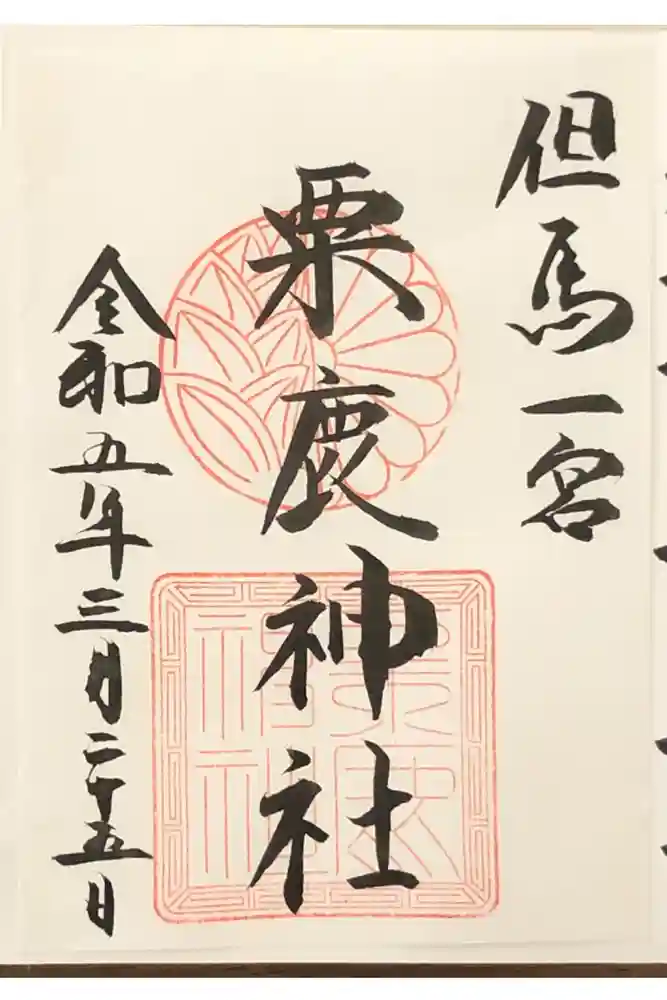 但馬一宮
粟鹿神社
令和五年三月二十五日
粟鹿
神社